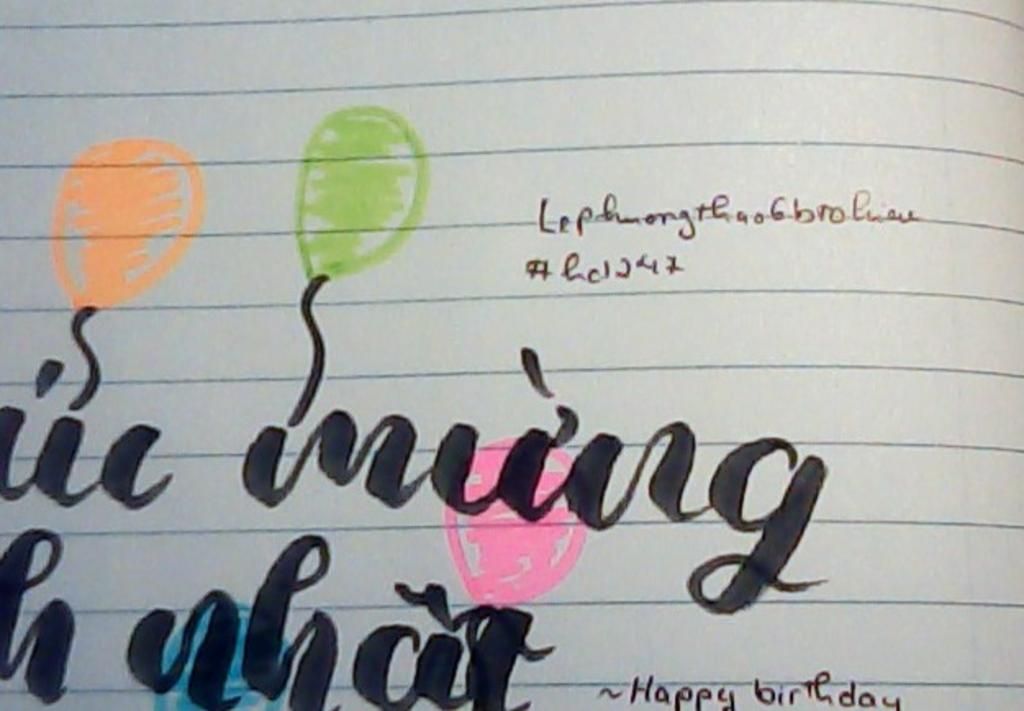 Lephuongthao6brohieu
#hd1247
úc mừng
h nhật
~Happy birthday